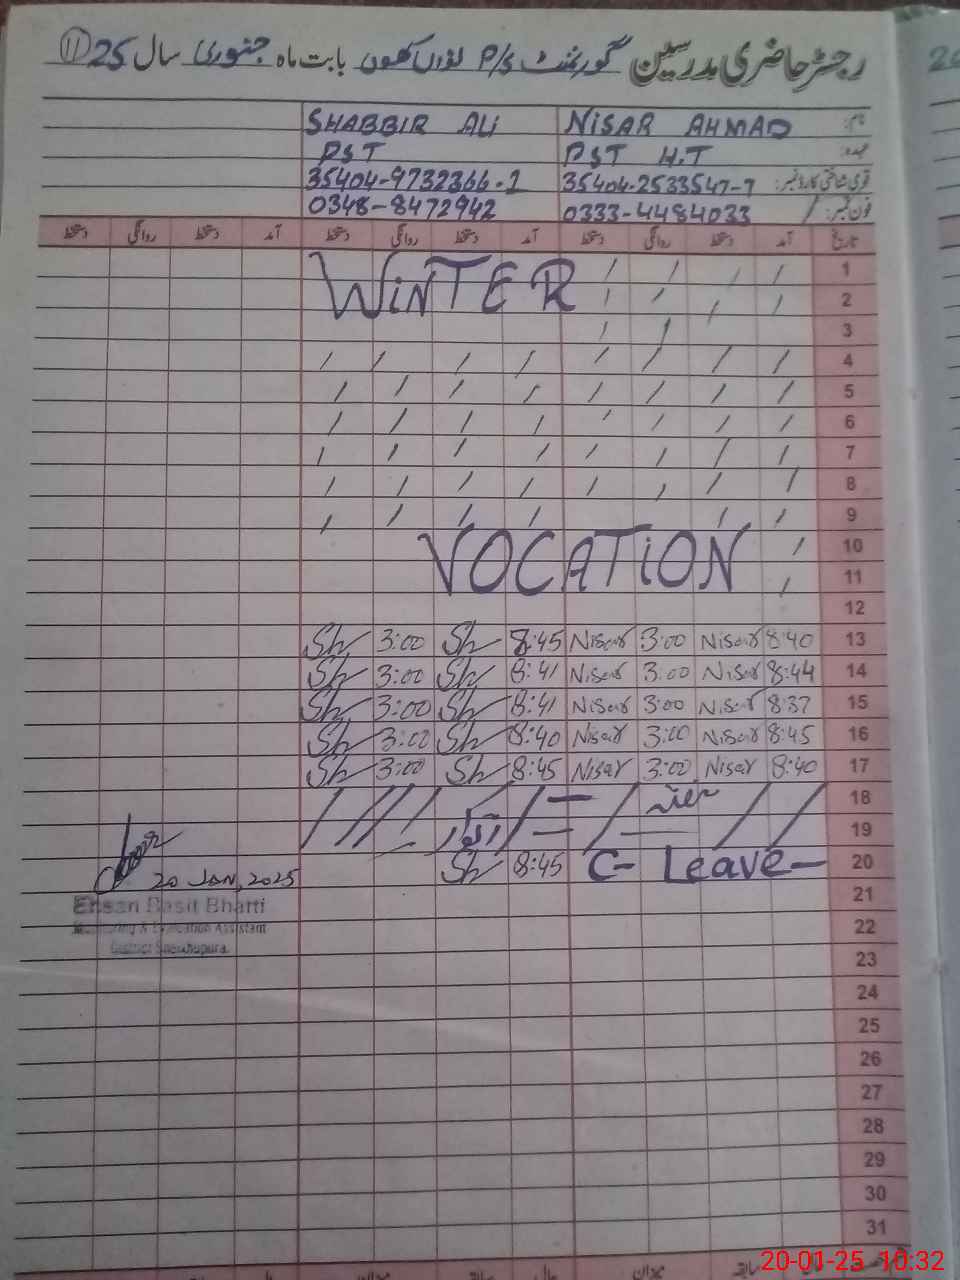 رجسٹر حاضری مدرسین گورنمنٹ P/S بابت ماہ جنوری سال 25 (11)
نام: NISAR AHMAD SHABBIR ALI
عہدہ: PST H.T PST
قومی شناختی کارڈ نمبر: 35404-2533547-7 35404-9732366-1
فون نمبر: 0333-4484033 0348-8472942
تاریخ آمد دستخط روانگی دستخط آمد دستخط روانگی دستخط آمد دستخط روانگی دستخط
1
WINTER
2
3
4
5
6
7
8
9
10
VOCATION
11
12
13 8:40 Nisar 3:00 Nisar 8:45 Sh 3:00 Sh
14 8:44 Nisar 3:00 Nisar 8:41 Sh 3:00 Sh
15 8:37 Nisar 3:00 Nisar 8:41 Sh 3:00 Sh
16 8:45 Nisar 3:00 Nisar 8:40 Sh 3:00 Sh
17 8:40 Nisar 3:00 Nisar 8:45 Sh 3:00 Sh
18
19 اتوار
20 C- Leave- 8:45 Sh
20 JAN, 2025
21
Ehsan Basit Bhatti
22
Monitoring & Evaluation Assistant
District Sheikhupura
23
24
25
26
27
28
29
30
31
20-01-25 10:32